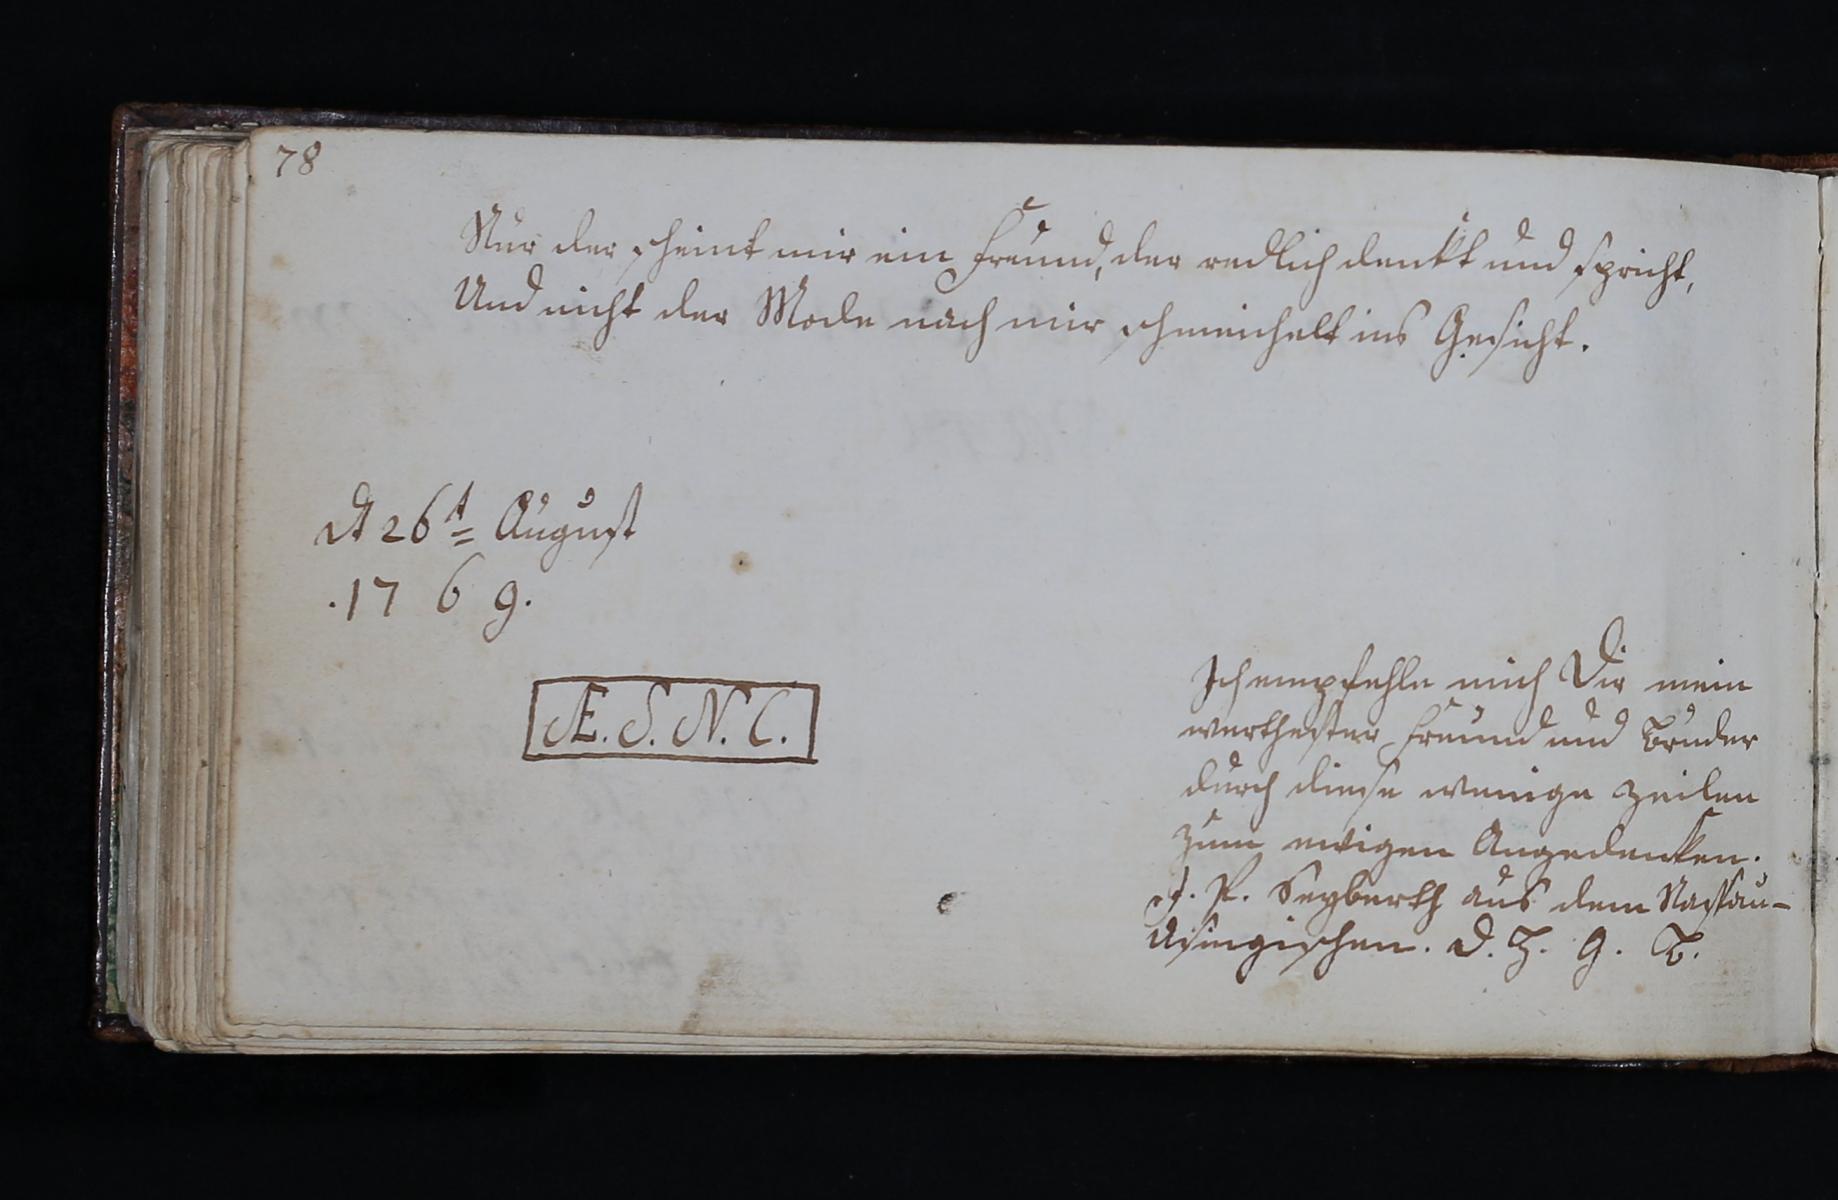 78
Nur der scheint mir ein Freund, der redlich denkt und spricht,
Und nicht der Mode nach mir schmeichelt ins Gesicht.
26t August
.1769.
Æ. S. N. C.
Ich empfehle mich Dir mein
werthester Freund und Bruder
durch diese wenige Zeilen
zum ewigen Angedenken.
J. P. Seyberth aus dem Nassau-
Usingischen. D. G. B.